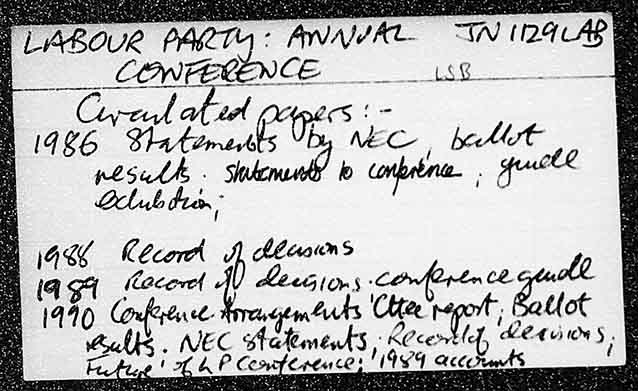 LABOUR PARTY: ANNUAL JN 1129 LAB
CONFERENCE LSB
Circulated papers:-
1986 Statements by NEC, ballot
results. statements to conference; guide
exhibition;
1988 Record of decisions
1989 Record of decisions. conference guide
1990 Conference Arrangements Cttee report; Ballot
results. NEC statements; Record of decisions;
'Future' of LP Conference; 1989 accounts